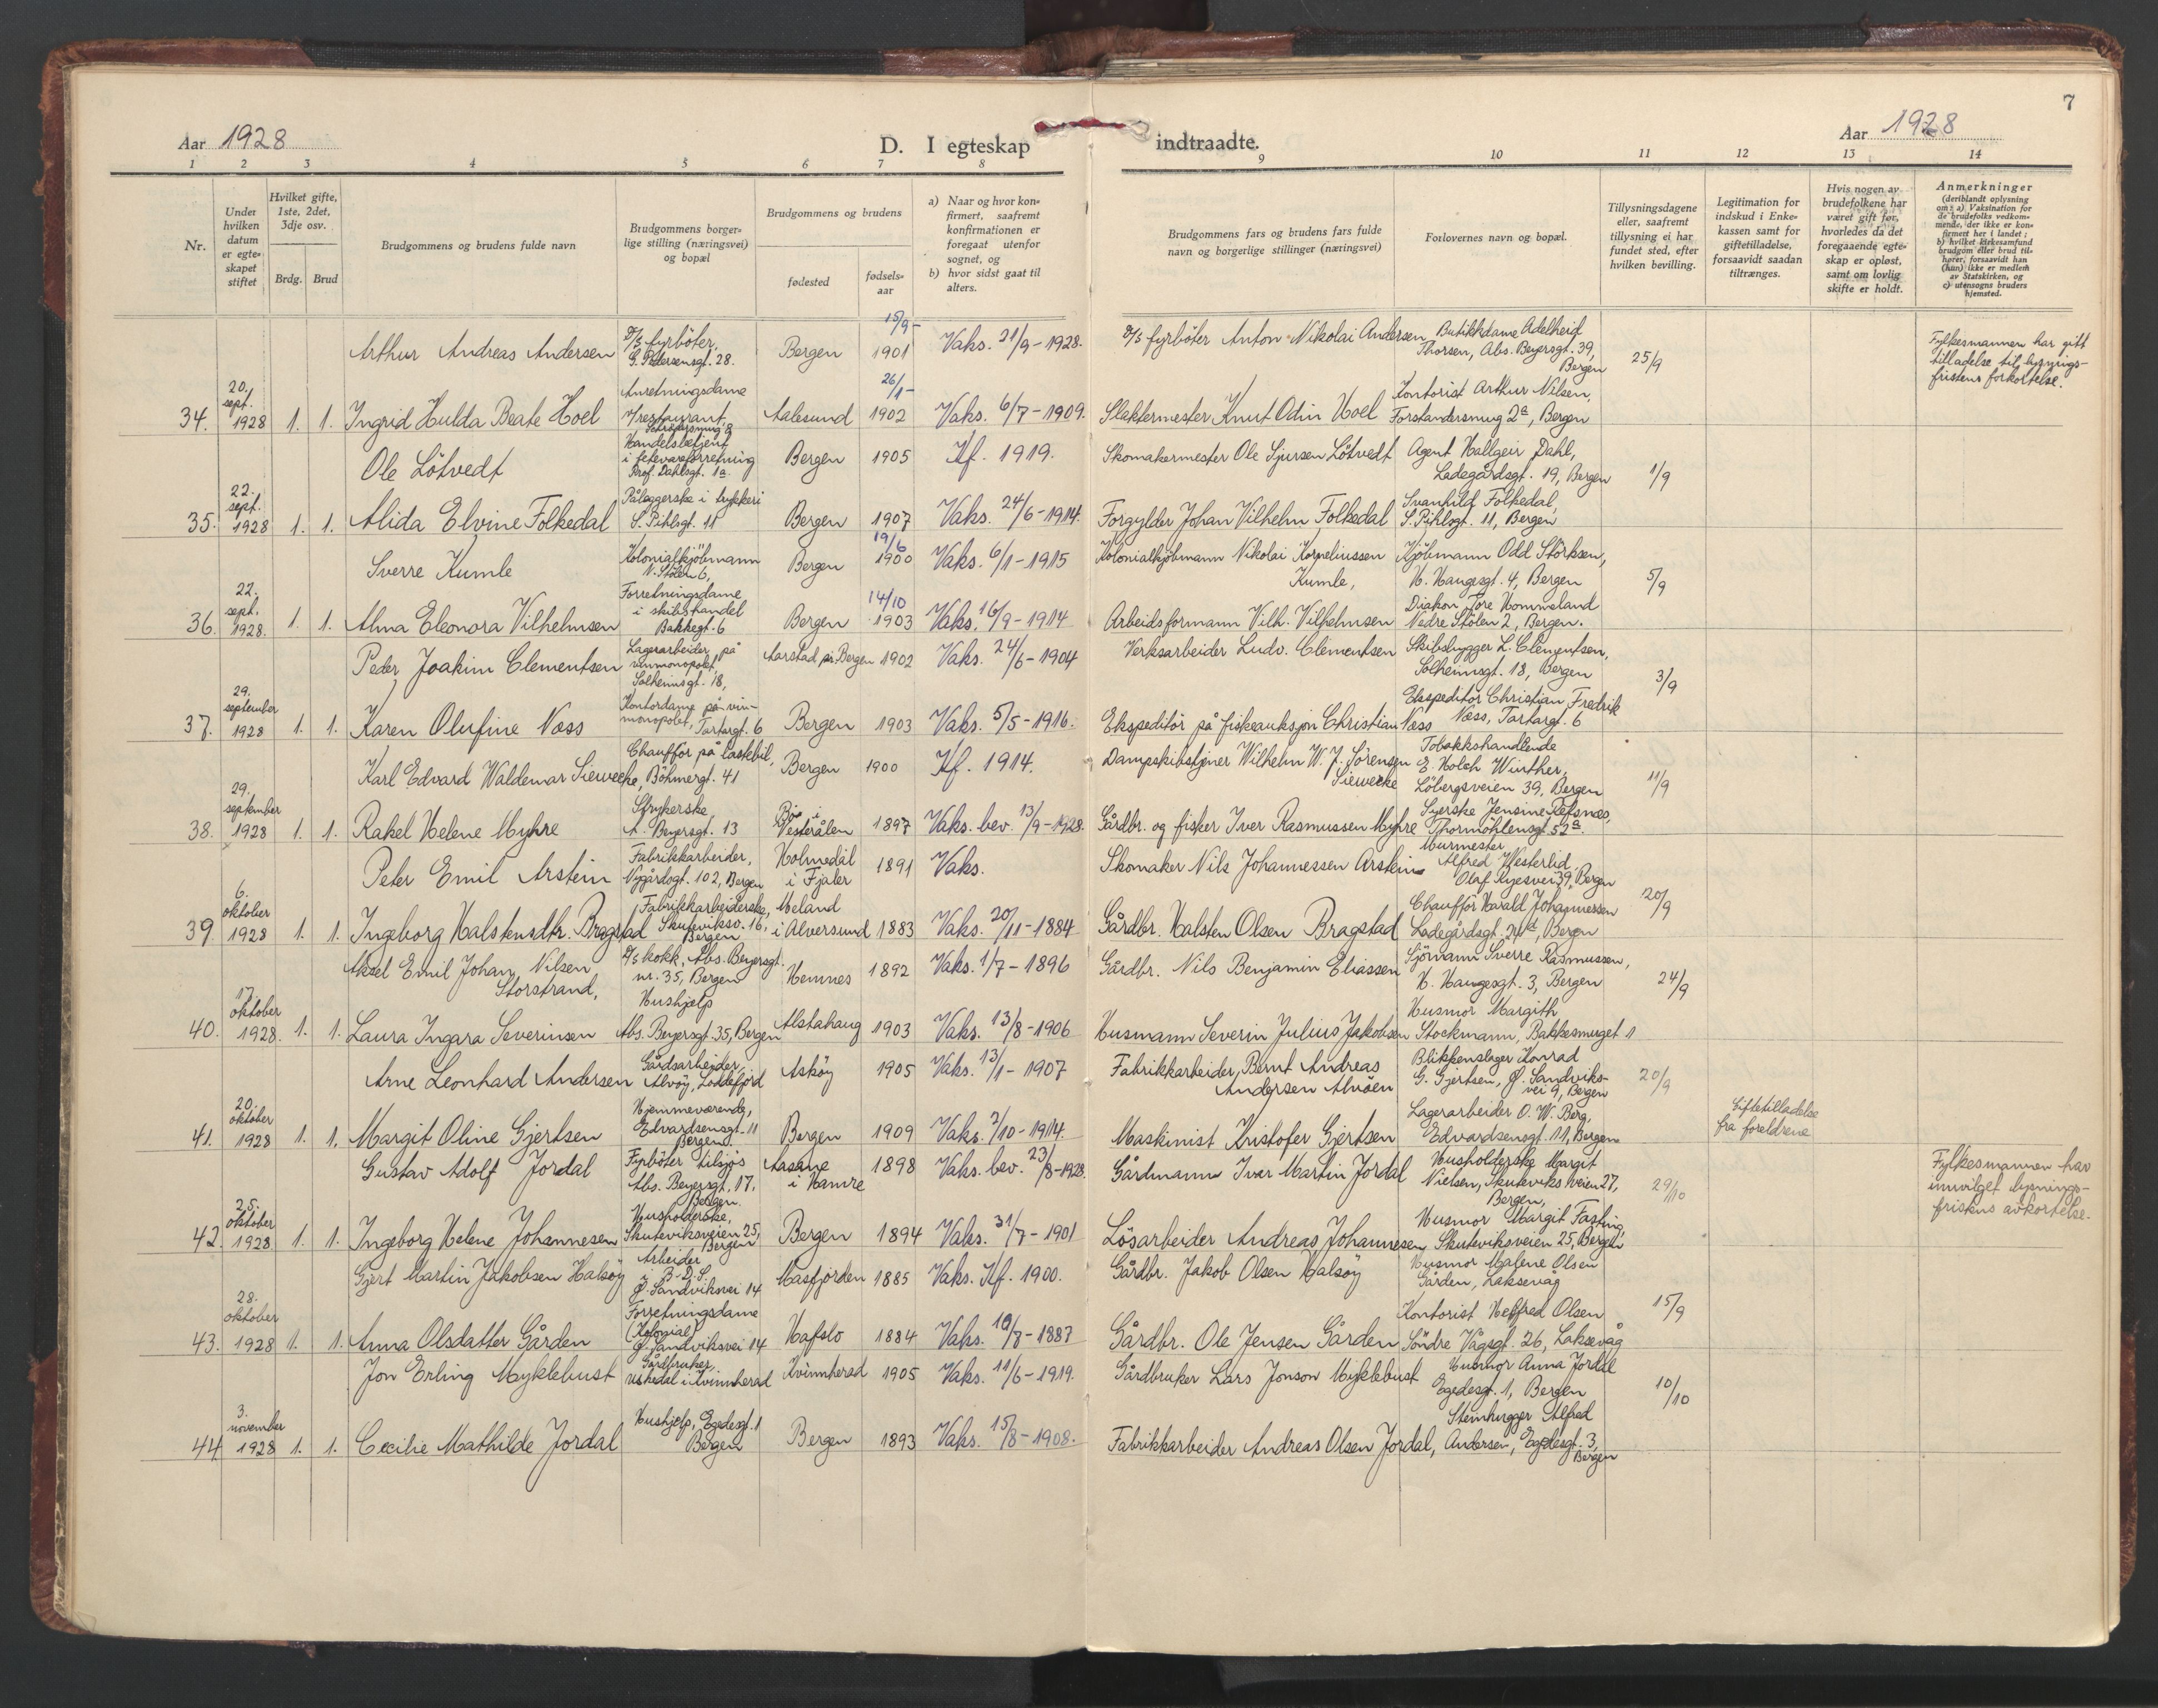 7
Aar 1928
D. I egteskap indtraadte.
Aar 1928
1 2 3 4 5 6 7 8 9 10 11 12 13 14
Nr.
Under hvilken datum er egte-skapet stiftet
Hvilket gifte, 1ste, 2det, 3dje osv.
Brdg. Brud
Brudgommens og brudens fulde navn
Brudgommens borger-lige stilling (næringsvei) og bopæl
Brudgommens og brudens
fødested
fødsels-aar
a) Naar og hvor kon-firmert, saafremt konfirmationen er foregaat utenfor sognet, og
b) hvor sidst gaat til alters.
Brudgommens fars og brudens fars fulde navn og borgerlige stillinger (næringsvei)
Forlovernes navn og bopæl.
Tillysningsdagene eller, saafremt tillysning ei har fundet sted, efter hvilken bevilling.
Legitimation for indskud i Enke-kassen samt for giftetilladelse, forsaavidt saadan tiltrænges.
Hvis nogen av brudefolkene har været gift før, hvorledes da det foregaaende egte-skap er opløst, samt om lovlig skifte er holdt.
Anmerkninger (deriblandt oplysning om: a) Vaksination for de brudefolks vedkom-mende, der ikke er kon-firmert her i landet; b) hvilket kirkesamfund brudgom eller brud til-hører, forsaavidt han (hun) ikke er medlem av Statskirken, og c) utensogns bruders hjemsted.
Arthur Andreas Andersen D/S fyrböter, G. Pedersensgt. 28. Bergen 15/9- 1901 Vaks. 21/9-1928. D/S fyrböter Anton Nikolai Andersen Butikkdame Adelheid Thorsen, Abs. Beyersgt. 39, Bergen 25/9 Fylkesmannen har gitt tilladelse til lysnings-fristens forkortelse.
34. 20. sept. 1928 1. 1. Ingrid Hulda Beate Hoel Anretningsdame i restaurant Aalesund 26/1- 1902 Vaks. 6/7-1909. Slaktermester Knut Odin Hoel Kontorist Arthur Nilsen, Forstandersmug 2a, Bergen
Ole Lötvedt Handelsbetjent i fetevareforretning Prof. Dahlsgt. 1a Bergen 1905 Kf. 1919. Skomakermester Ole Sjursen Lötvedt Agent Hallgeir Dahl, Ladegårdsgt. 19, Bergen 1/9
35. 22. sept. 1928 1. 1. Alida Elvine Folkedal Påleggerske i trykkeri S. Pihlsgt. 11 Bergen 1907 Vaks. 24/6-1914. Forgylder Johan Vilhelm Folkedal Svanhild Folkedal, S. Pihlsgt. 11, Bergen
Sverre Kumle Kolonialkjöbmann N. Stölen 6, Bergen 19/6 1900 Vaks. 6/1-1915 Kolonialkjöbmann Nikolai Korneliussen Kumle, Kjöbmann Odd Störksen, H. Haugesgt. 4, Bergen 5/9
36. 22. sept. 1928. 1. 1. Alma Eleonora Vilhelmsen Forretningsdame i skibshandel Bakkegt. 6 Bergen 14/10 1903 Vaks. 16/9-1914 Arbeidsformann Vilh. Vilhelmsen Diakon Tore Hommeland Nedre Stölen 2, Bergen.
Peder Joakim Clementsen Lagerarbeider på vinmonopolet, Solheimsgt. 18, Aarstad pr. Bergen 1902 Vaks. 24/6-1904 Verksarbeider Ludv. Clementsen Skibsbygger L. Clementsen, Solheimsgt. 18, Bergen 3/9
37. 29. september 1928 1. 1. Karen Olufine Næss Kontordame på vin-monopolet, Tartargt. 6 Bergen 1903 Vaks. 5/5-1916. Ekspeditör på fiskeauksjon Christian Næss Ekspeditör Christian Fredrik Næss, Tartargt. 6
Karl Edvard Waldemar Siewecke, Chauffør på lastebil, Böhmergt. 41 Bergen 1900 Kf. 1914. Dampskibstjener Wilhelm W. J. Sörensen Siewecke Tobakkshandlende E. Holch Winther, Löbergsveien 39, Bergen 11/9
38. 29. september 1928 1. 1. Rakel Helene Myhre Strykerske A. Beyersgt. 13 Bö i Vesterålen 1897 Vaks. bev. 13/9-1928. Gårdbr. og fisker Iver Rasmussen Myhre Syerske Jensine Refsnæs, Thormöhlensgt. 52a.
Peter Emil Arstein Fabrikkarbeider, Nygårdsgt. 102, Bergen Holmedal i Fjaler 1891 Vaks. Skomaker Nils Johannessen Arstein Murmester Alfred Westerlid Olaf Ryesvei 39, Bergen 20/9
39. 6. oktober 1928 1. 1. Ingeborg Halstensdtr. Bragstad Fabrikkarbeiderske, Skuteviksv. 16, Bergen Meland i Alversund 1883 Vaks. 20/11-1884 Gårdbr. Halsten Olsen Bragstad Chauffør Harald Johannessen Ladegårdsgt. , Bergen
Aksel Emil Johan Nilsen Storstrand, D/S kokk, Abs. Beyersgt. nr. 35, Bergen Hemnes 1892 Vaks. 1/7-1896 Gårdbr. Nils Benjamin Eliassen Sjömann Sverre Rasmussen, H. Haugesgt. 3, Bergen 24/9
40. 17. oktober 1928. 1. 1. Laura Ingara Severinsen Hushjelp Abs. Beyersgt. 35, Bergen Alstahaug 1903 Vaks. 13/8-1906 Husmann Severin Julius Jakobsen Husmor Margith Stockmann, Bakkesmuget 11
Arne Leonhard Andersen Gårdsarbeider, Alvöy, Loddefjord Asköy 1905 Vaks. 13/1-1907 Fabrikkarbeider, Bernt Andreas Andersen Alvöen Blikkenslager Konrad G. Gjertsen, Ø. Sandviks-vei 9, Bergen 20/9
41. 20. oktober 1928 1. 1. Margit Oline Gjertsen Hjemmeværende, Edvardsensgt. 11 Bergen. Bergen 1909 Vaks. 3/10-1914. Maskinist Kristofer Gjertsen Lagerarbeider O. W. Berg, Edvardsensgt. 11, Bergen Giftetilladelse fra foreldrene
Gustav Adolf Jordal Fyrböter tilsjøs Abs. Beyersgt. 17, Bergen. Aasane i Hamre 1898 Vaks. bev. 23/8-1928. Gårdmann Ivar Martin Jordal Husholderske Margit Nielsen, Skuteviksveien 27, Bergen, 29/10 Fylkesmannen har innvilget lysnings-fristens avkortelse.
42. 25. oktober 1928 1. 1. Ingeborg Helene Johannesen Husholderske, Skuteviksveien 25, Bergen Bergen 1894 Vaks. 31/7-1901 Lösarbeider Andreas Johannesen Husmor Margit Fasting, Skuteviksveien 25, Bergen
Gjert Martin Jakobsen Halsöy Arbeider i B.D.S. Ø. Sandviksvei 14 Masfjorden 1885 Vaks. Kf. 1900. Gårdbr. Jakob Olsen Halsöy Husmor Malene Olsen Gården, Laksevåg 15/9
43. 28. oktober 1928 1. 1. Anna Olsdatter Gården Forretningsdame (Kolonial) Ø. Sandviksvei 14 Hafslo 1884 Vaks. 10/8-1887 Gårdbr. Ole Jensen Gården Kontorist Helfred Olsen Söndre Vågsgt. 26, Laksevåg
Jon Erling Myklebust Gårdbruker, Uskedal i Kvinnherad Kvinnherad 1905 Vaks. 11/6-1919. Gårdbruker Lars Jonson Myklebust Husmor Anna Jordal Egedesgt. 1, Bergen 10/10
44. 3. november 1928 1. 1. Cecilie Mathilde Jordal Hushjelp, Egedesgt. 1 Bergen Bergen 1893 Vaks. 15/8-1908. Fabrikkarbeider Andreas Olsen Jordal, Stenhugger Alfred Andersen, Egedesgt. 3, Bergen